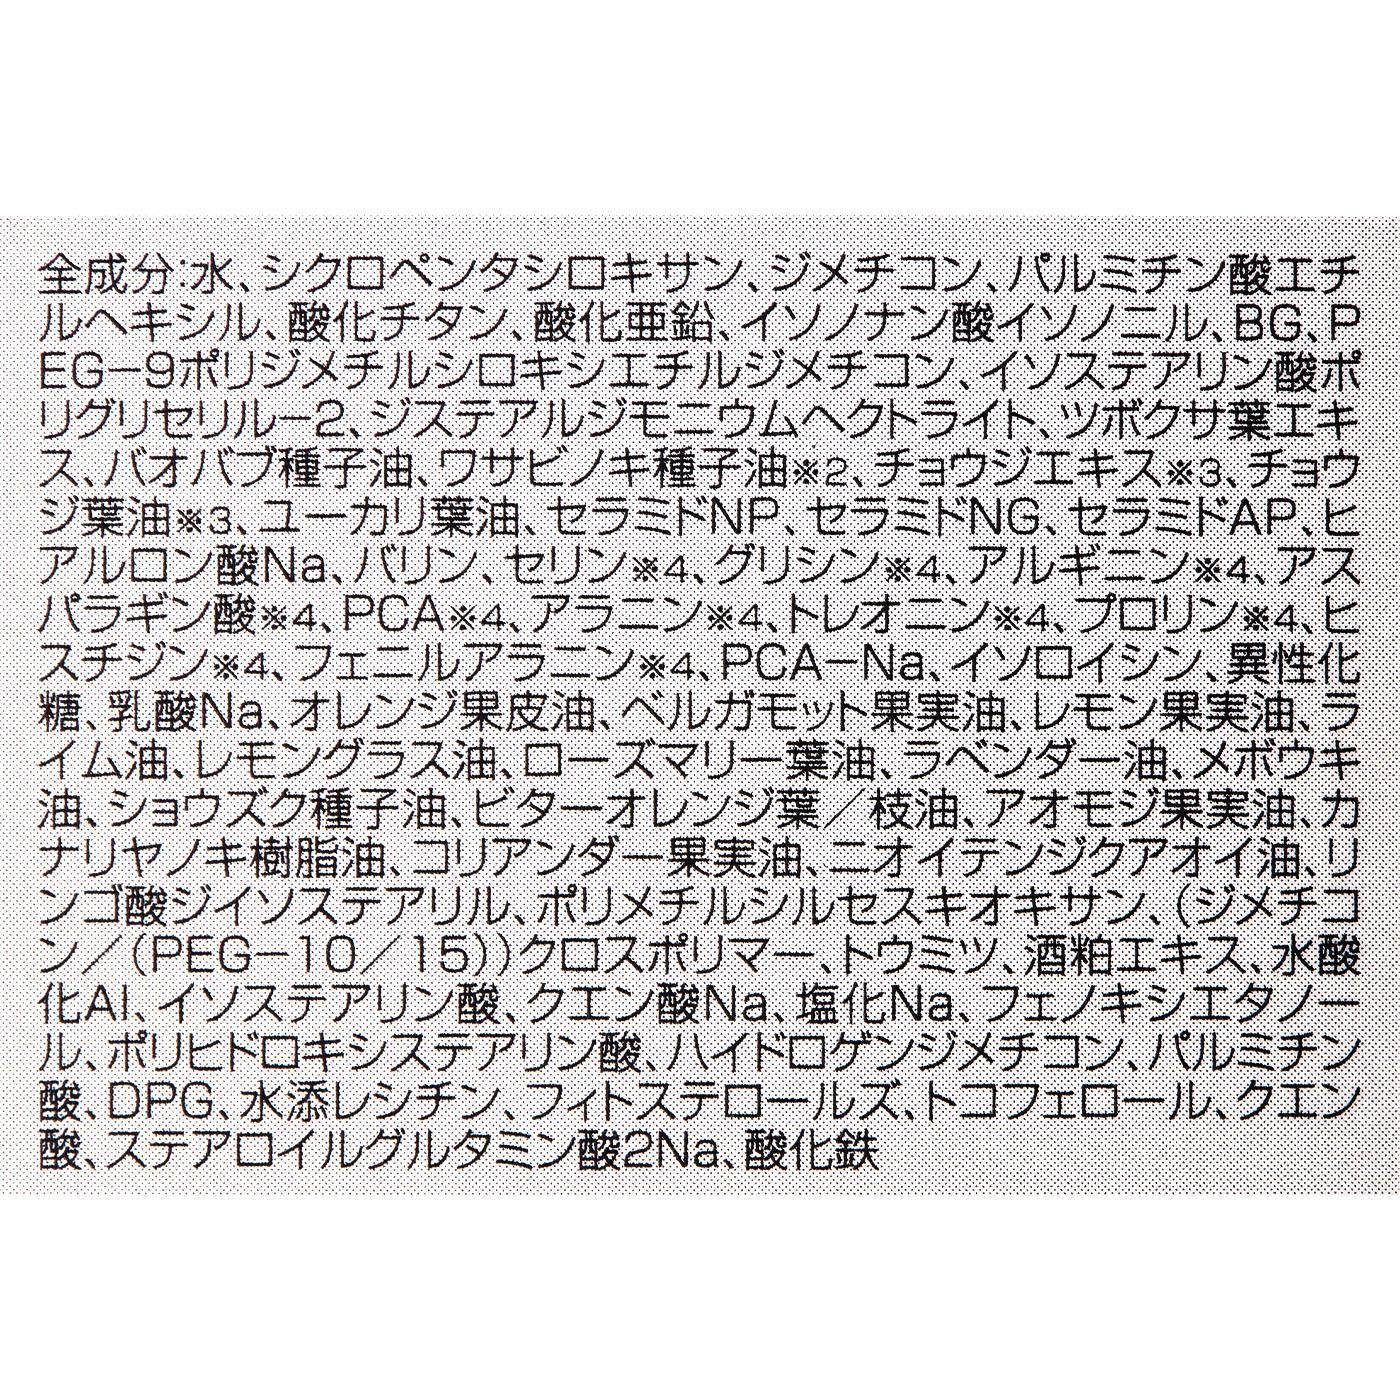 全成分:水、シクロペンタシロキサン、ジメチコン、パルミチン酸エチ
ルヘキシル、酸化チタン、酸化亜鉛、イソノナン酸イソノニル、BG、P
EG−9ポリジメチルシロキシエチルジメチコン、イソステアリン酸ポ
リグリセリル−2、ジステアルジモニウムヘクトライト、ツボクサ葉エキ
ス、バオバブ種子油、ワサビノキ種子油※2、チョウジエキス※3、チョウ
ジ葉油※3、ユーカリ葉油、セラミドNP、セラミドNG、セラミドAP、ヒ
アルロン酸Na、バリン、セリン※4、グリシン※4、アルギニン※4、アス
パラギン酸※4、PCA※4、アラニン※4、トレオニン※4、プロリン※4、ヒ
スチジン※4、フェニルアラニン※4、PCA−Na、イソロイシン、異性化
糖、乳酸Na、オレンジ果皮油、ベルガモット果実油、レモン果実油、ラ
イム油、レモングラス油、ローズマリー葉油、ラベンダー油、メボウキ
油、ショウズク種子油、ビターオレンジ葉／枝油、アオモジ果実油、カ
ナリヤノキ樹脂油、コリアンダー果実油、ニオイテンジクアオイ油、リ
ンゴ酸ジイソステアリル、ポリメチルシルセスキオキサン、(ジメチコ
ン／(PEG−10／15))クロスポリマー、トウミツ、酒粕エキス、水酸
化Al、イソステアリン酸、クエン酸Na、塩化Na、フェノキシエタノー
ル、ポリヒドロキシステアリン酸、ハイドロゲンジメチコン、パルミチン
酸、DPG、水添レシチン、フィトステロールズ、トコフェロール、クエン
酸、ステアロイルグルタミン酸2Na、酸化鉄